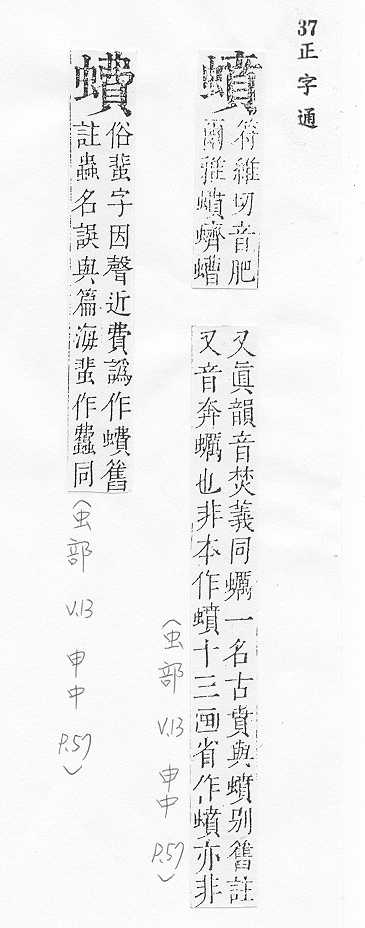 37正字通
蟦
符維切音肥
爾雅蟦蠐螬
又眞韻音焚義同蠣一名古賁與蟦别舊註
又音奔蠣也非本作蟦十三画省作蟦亦非
(虫部 V.13 申中 P.57)
䗿
俗蜚字因聲近費譌作䗿舊
註蟲名誤與篇海蜚作蠹同
(虫部 V.13 申中 P.57)